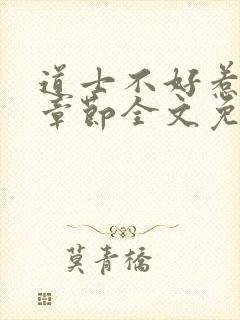 道士不好惹
章节全文免
莫青橋